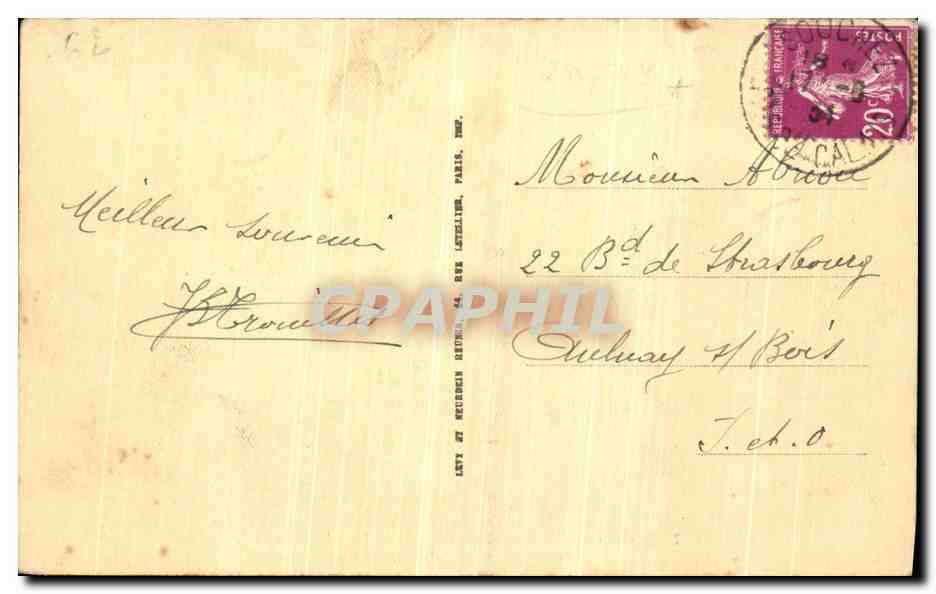 Meilleur souvenir
LEVY ET NEURDEIN REUNIS, 44, RUE LETELLIER, PARIS, IMP.
REPUBLIQUE FRANÇAISE
POSTES
20c
CALAIS
Monsieur
22 Bd de Strasbourg
Aulnay s/ Bois
S. et. O
CPAPHIL